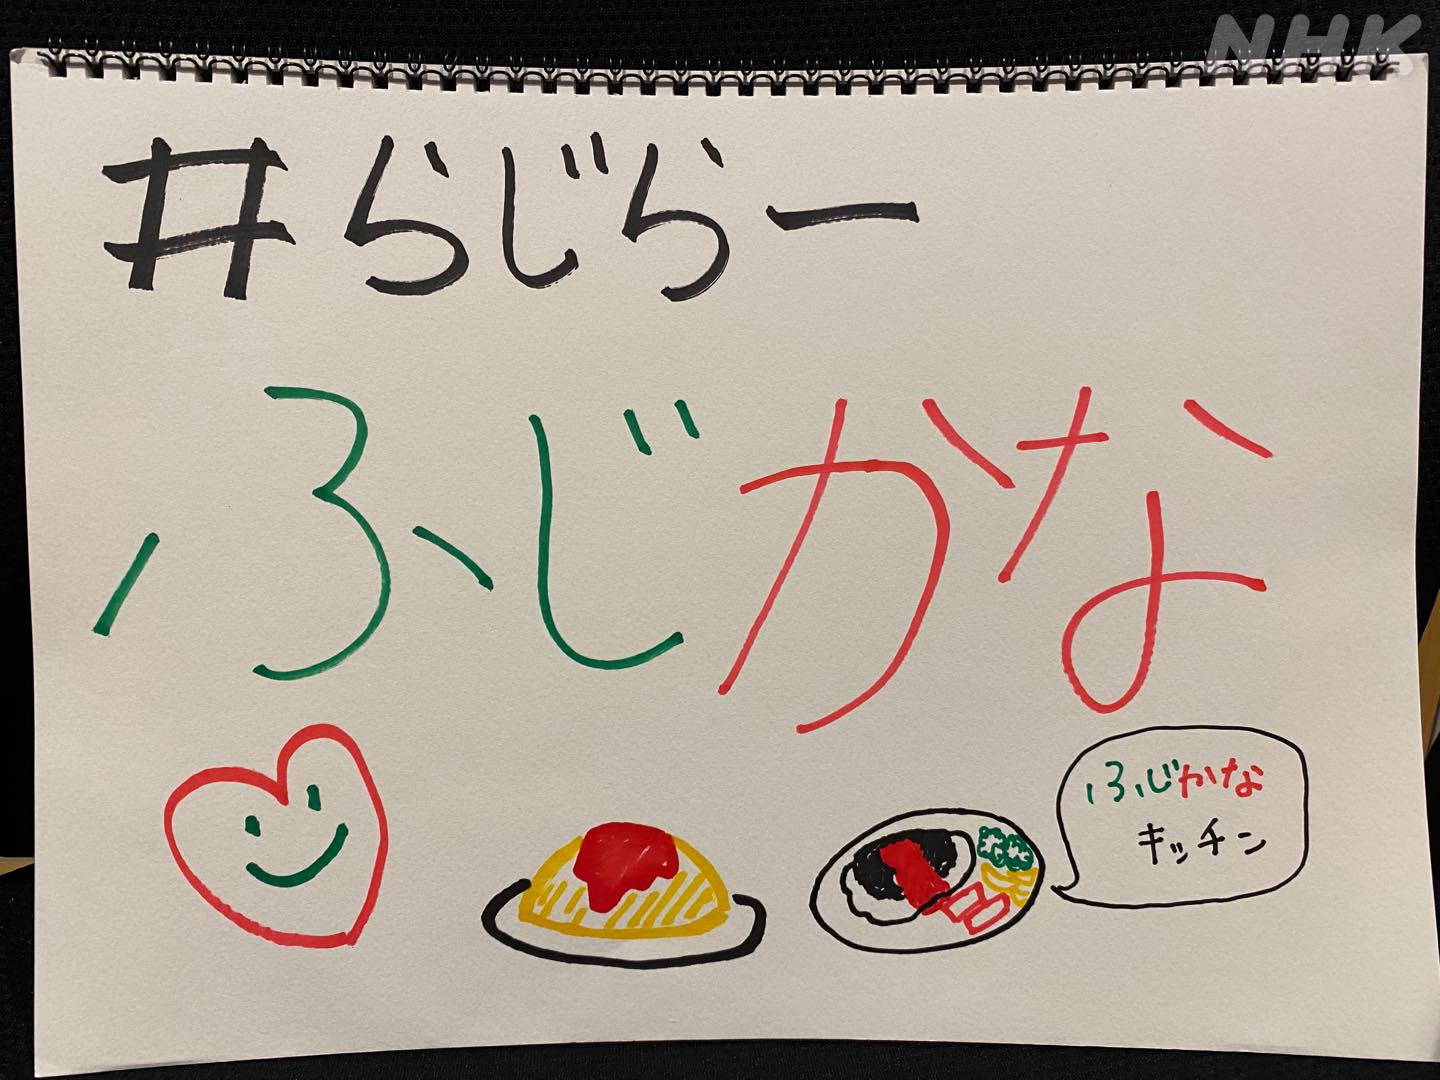 NHK
#らじらー
ふじかな
ふじかな
キッチン